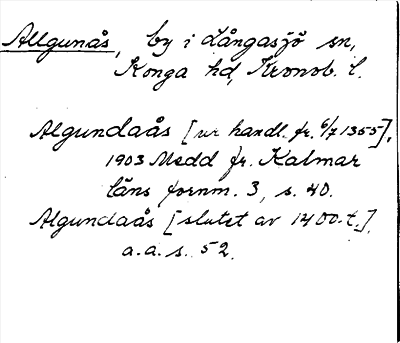 Allgunås, by i Långasjö sn,
Konga hd, Kronob. l.
Algundaås [ur handl. fr. 6/7 1355],
1903 Medd fr. Kalmar
läns fornm. 3, s. 40.
Algundaås [slutet av 1400-t.],
a.a. s. 52.